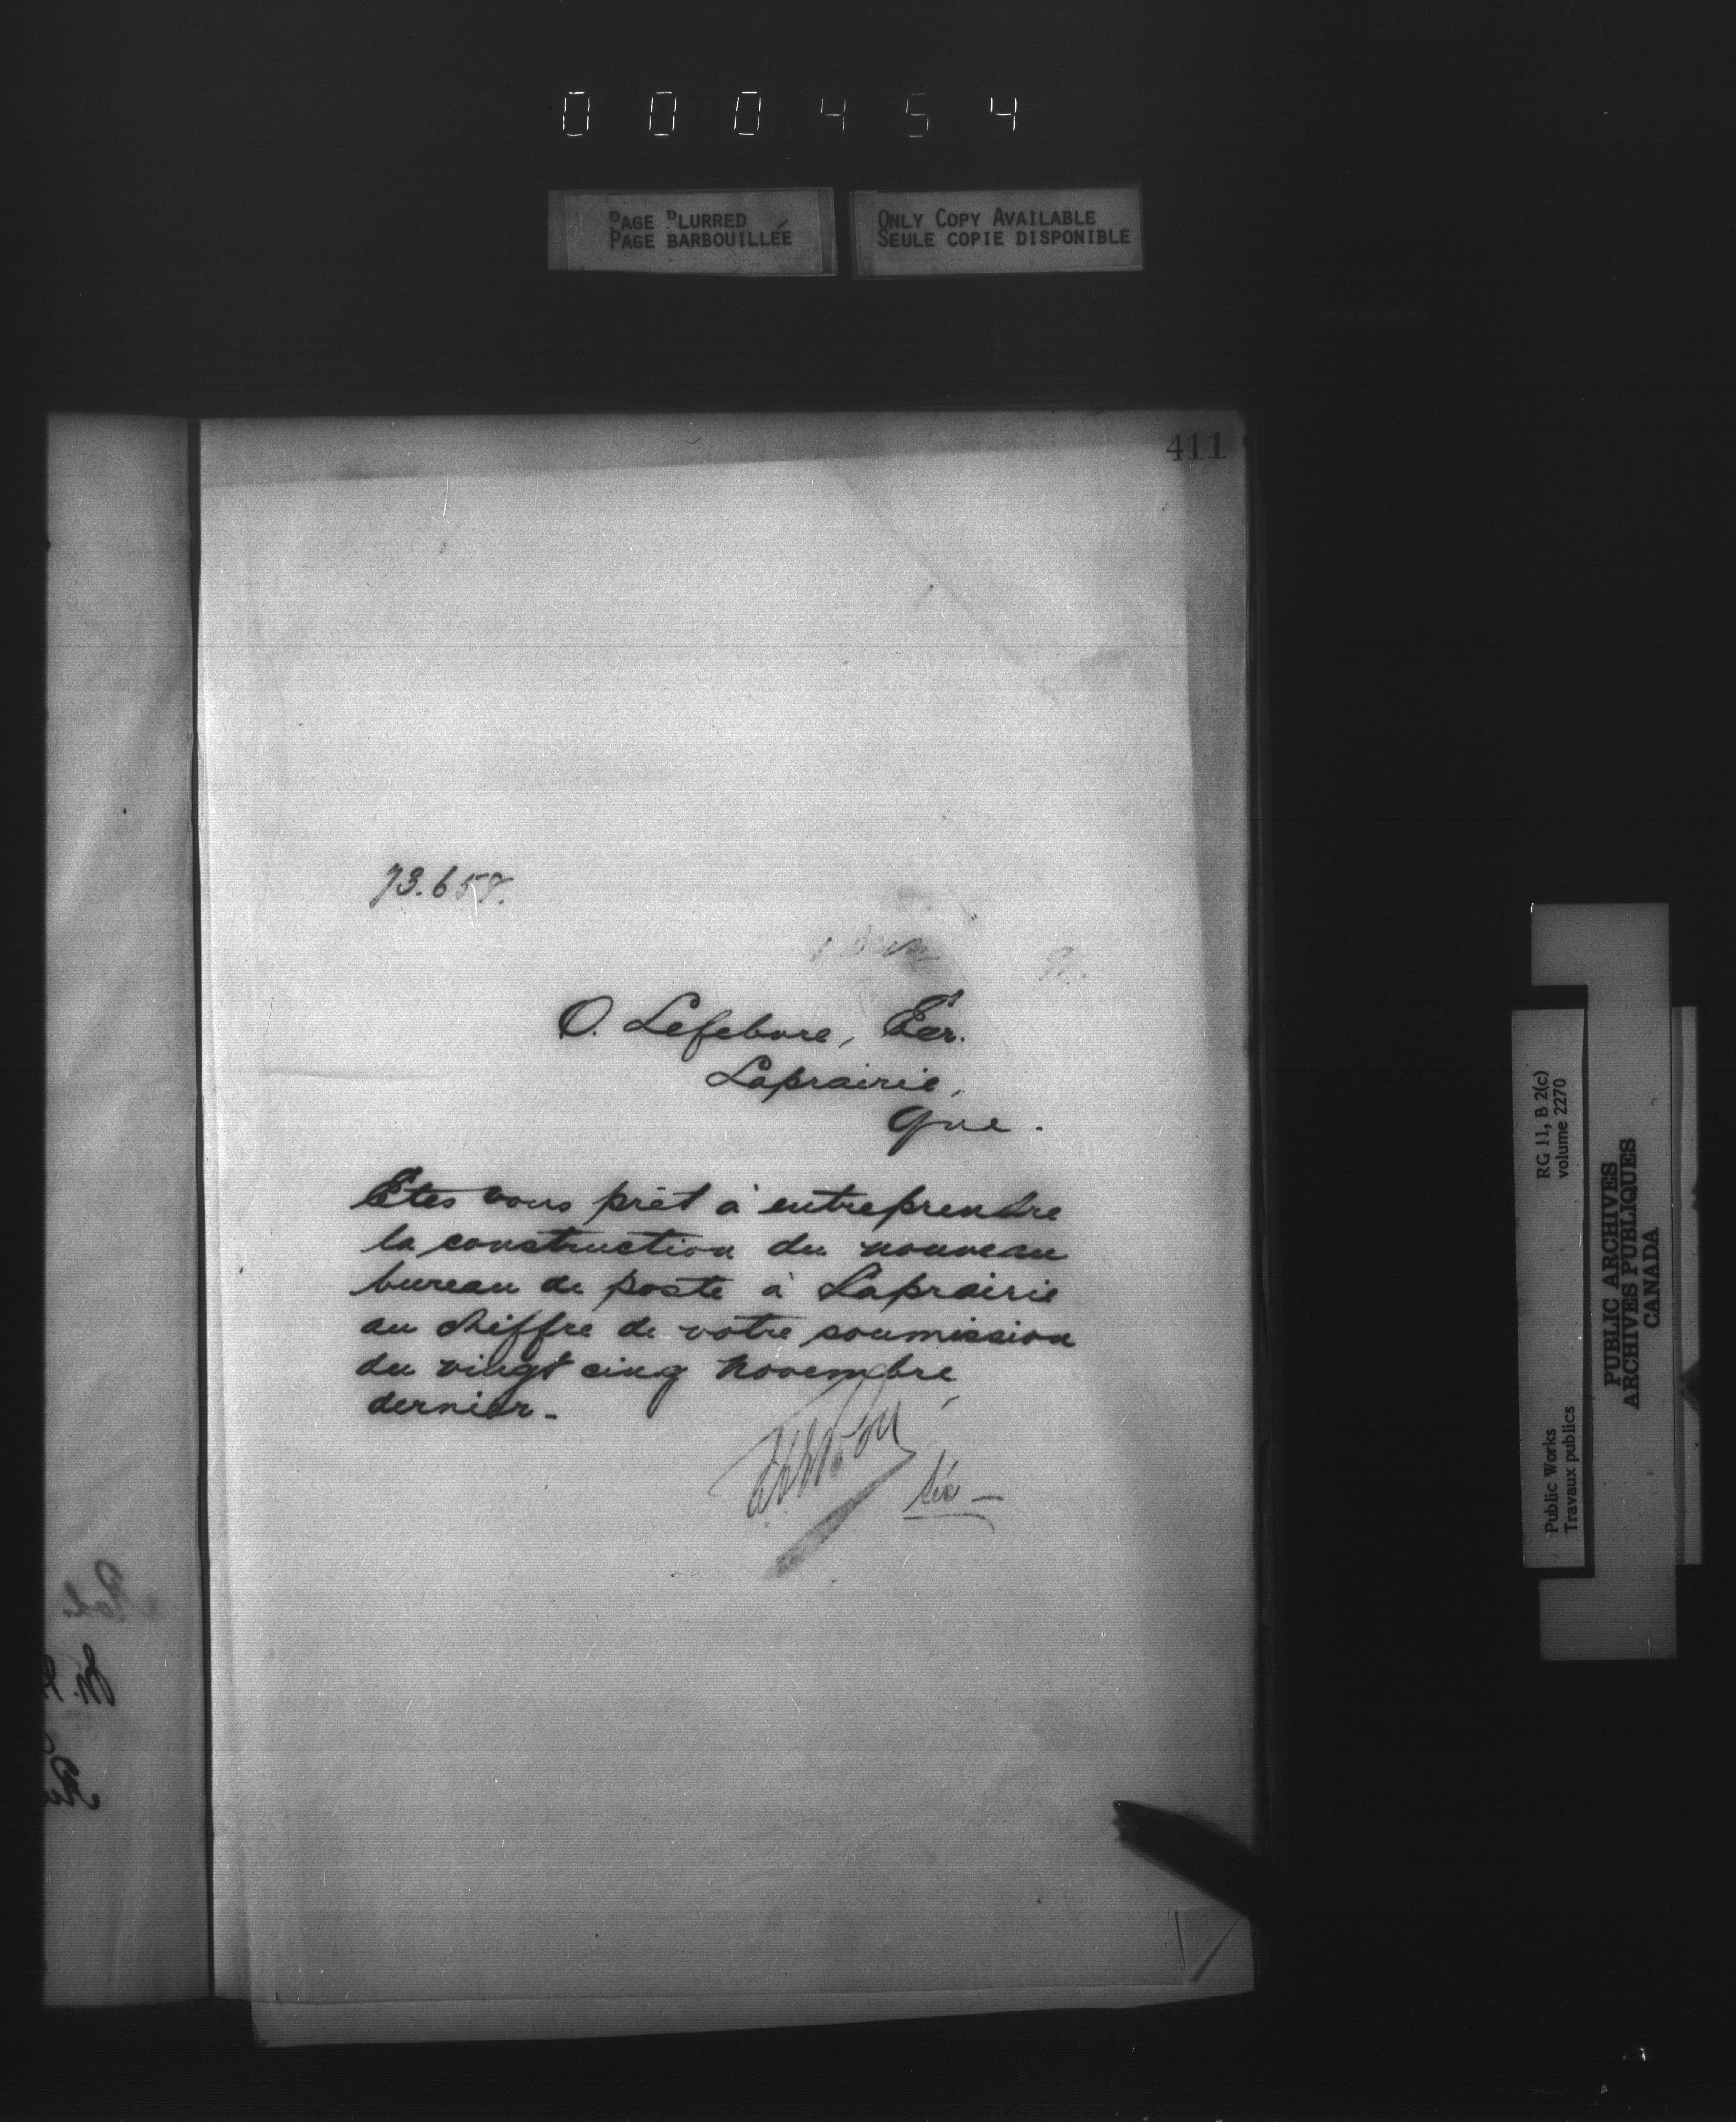 000454
PAGE BLURRED
PAGE BARBOUILLÉE
ONLY COPY AVAILABLE
SEULE COPIE DISPONIBLE
411
73.658.
O. Lefebvre, Ecr.
Laprairie,
Que.
Êtes vous prêt à entreprendre
la construction du nouveau
bureau de poste à Laprairie
au chiffre de votre soumission
du vingt cinq novembre
dernier.-
Séc -
RG 11, B 2(c)
volume 2270
Public Works
Travaux publics
PUBLIC ARCHIVES
ARCHIVES PUBLIQUES
CANADA